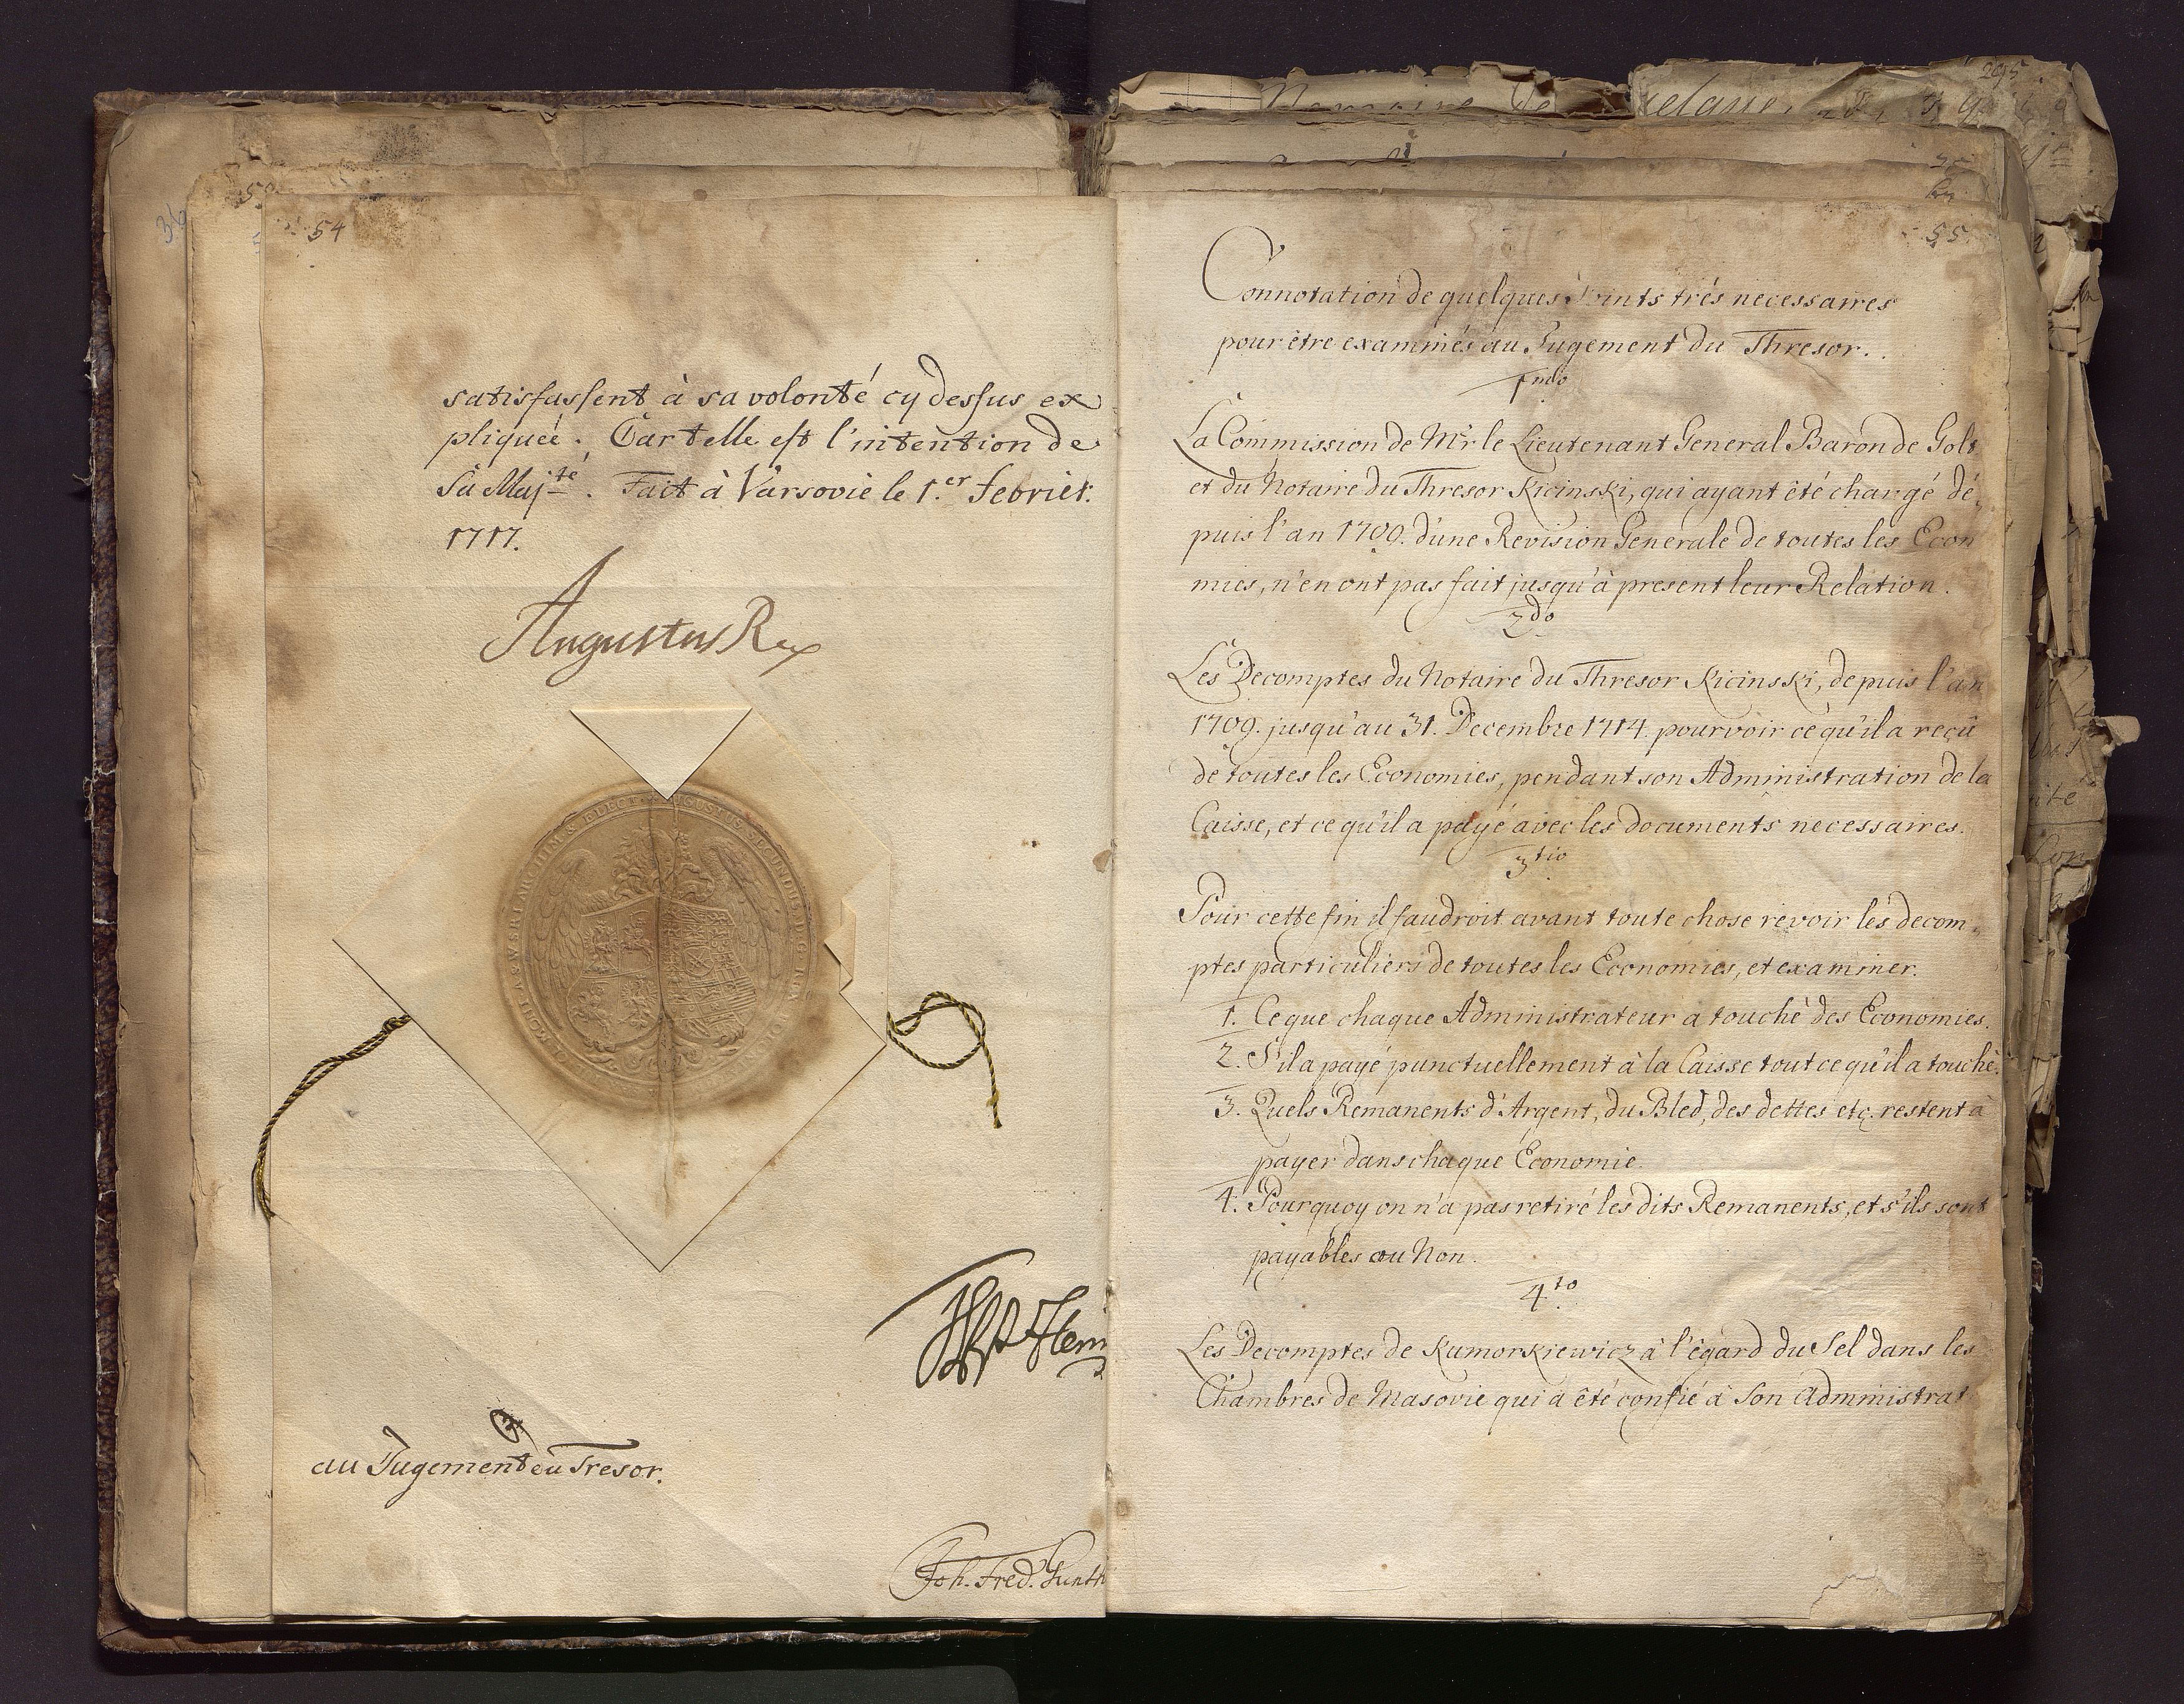 54
satisfassent à sa volonté cy dessus ex
pliquée. Car telle est l'intention de
Sa Maj.té. Fait à Varsovie le 1.er febrier.
1717.
Augustus Rex
AUGUSTUS SECUNDUS D. G. REX
ARCHIM. & ELECT.
au Jugement du Tresor.
Joh. Fred. Gunth
295
55
Connotation de quelques Points trés necessaires
pour être examinés au Jugement du Thresor..
1mo
La Commission de Mr. le Lieutenant General Baron de Golt
et du Notaire du Thresor Kicinski, qui ayant êté chargé dé-
puis l'an 1709. d'une Revision Generale de toutes les Econ
mies, n'en ont pas fait jusqu'à present leur Relation.
2do
Les Decomptes du Notaire du Thresor Kicinski, depuis l'an
1709. jusqu'au 31. Decembre 1714. pour voir ce qu'il a reçû
de toutes les Economies, pendant son Administration de la
Caisse, et ce qu'il a payé avec les documents necessaires.
3tio
Pour cette fin il faudroit avant toute chose revoir lés decom-
ptes particuliers de toutes les Economies, et examiner.
1. Ce que chaque Administrateur a touché des Economies.
2. S'il a payé punctuellement à la Caisse tout ce qu'il a touché.
3. Quels Remanents d'Argent, du Bled, des dettes etc. restent à
payer dans chaque Economie.
4. Pourquoy on n'a pas retiré les dits Remanents, et s'ils sont
payables ou Non.
4to
Les Decomptes de Kumorkiewicz à l'égard du Sel dans les
Chambres de Masovie qui a êté confié à Son Administrat